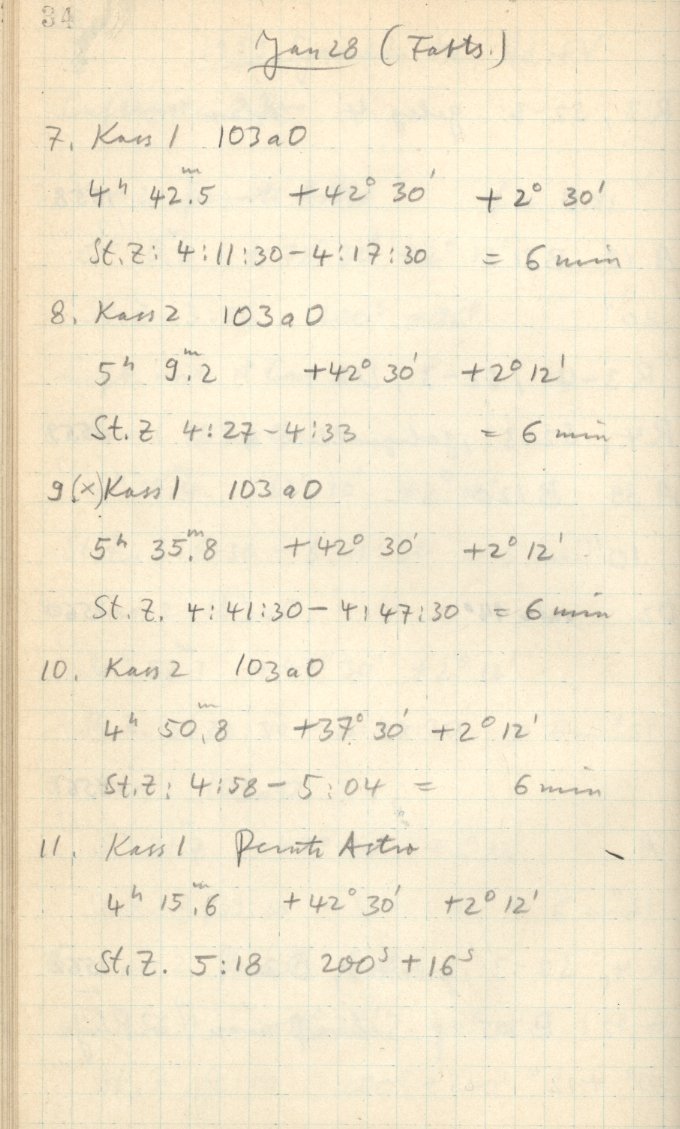 34
Jan 28 (Forts.)
7. Kass 1 103aO
4ʰ 42ᵐ.5 +42° 30' +2° 30'
St.Z: 4:11:30–4:17:30 = 6 min
8. Kass 2 103aO
5ʰ 9ᵐ.2 +42° 30' +2° 12'
St.Z 4:27–4:33 = 6 min
9(x) Kass 1 103aO
5ʰ 35ᵐ.8 +42° 30' +2° 12'
St.Z. 4:41:30–4:47:30 = 6 min
10. Kass 2 103aO
4ʰ 50ᵐ.8 +37° 30' +2° 12'
St.Z: 4:58–5:04 = 6 min
11. Kass 1 Astro
4ʰ 15ᵐ.6 +42° 30' +2° 12'
St.Z. 5:18 200ˢ+16ˢ